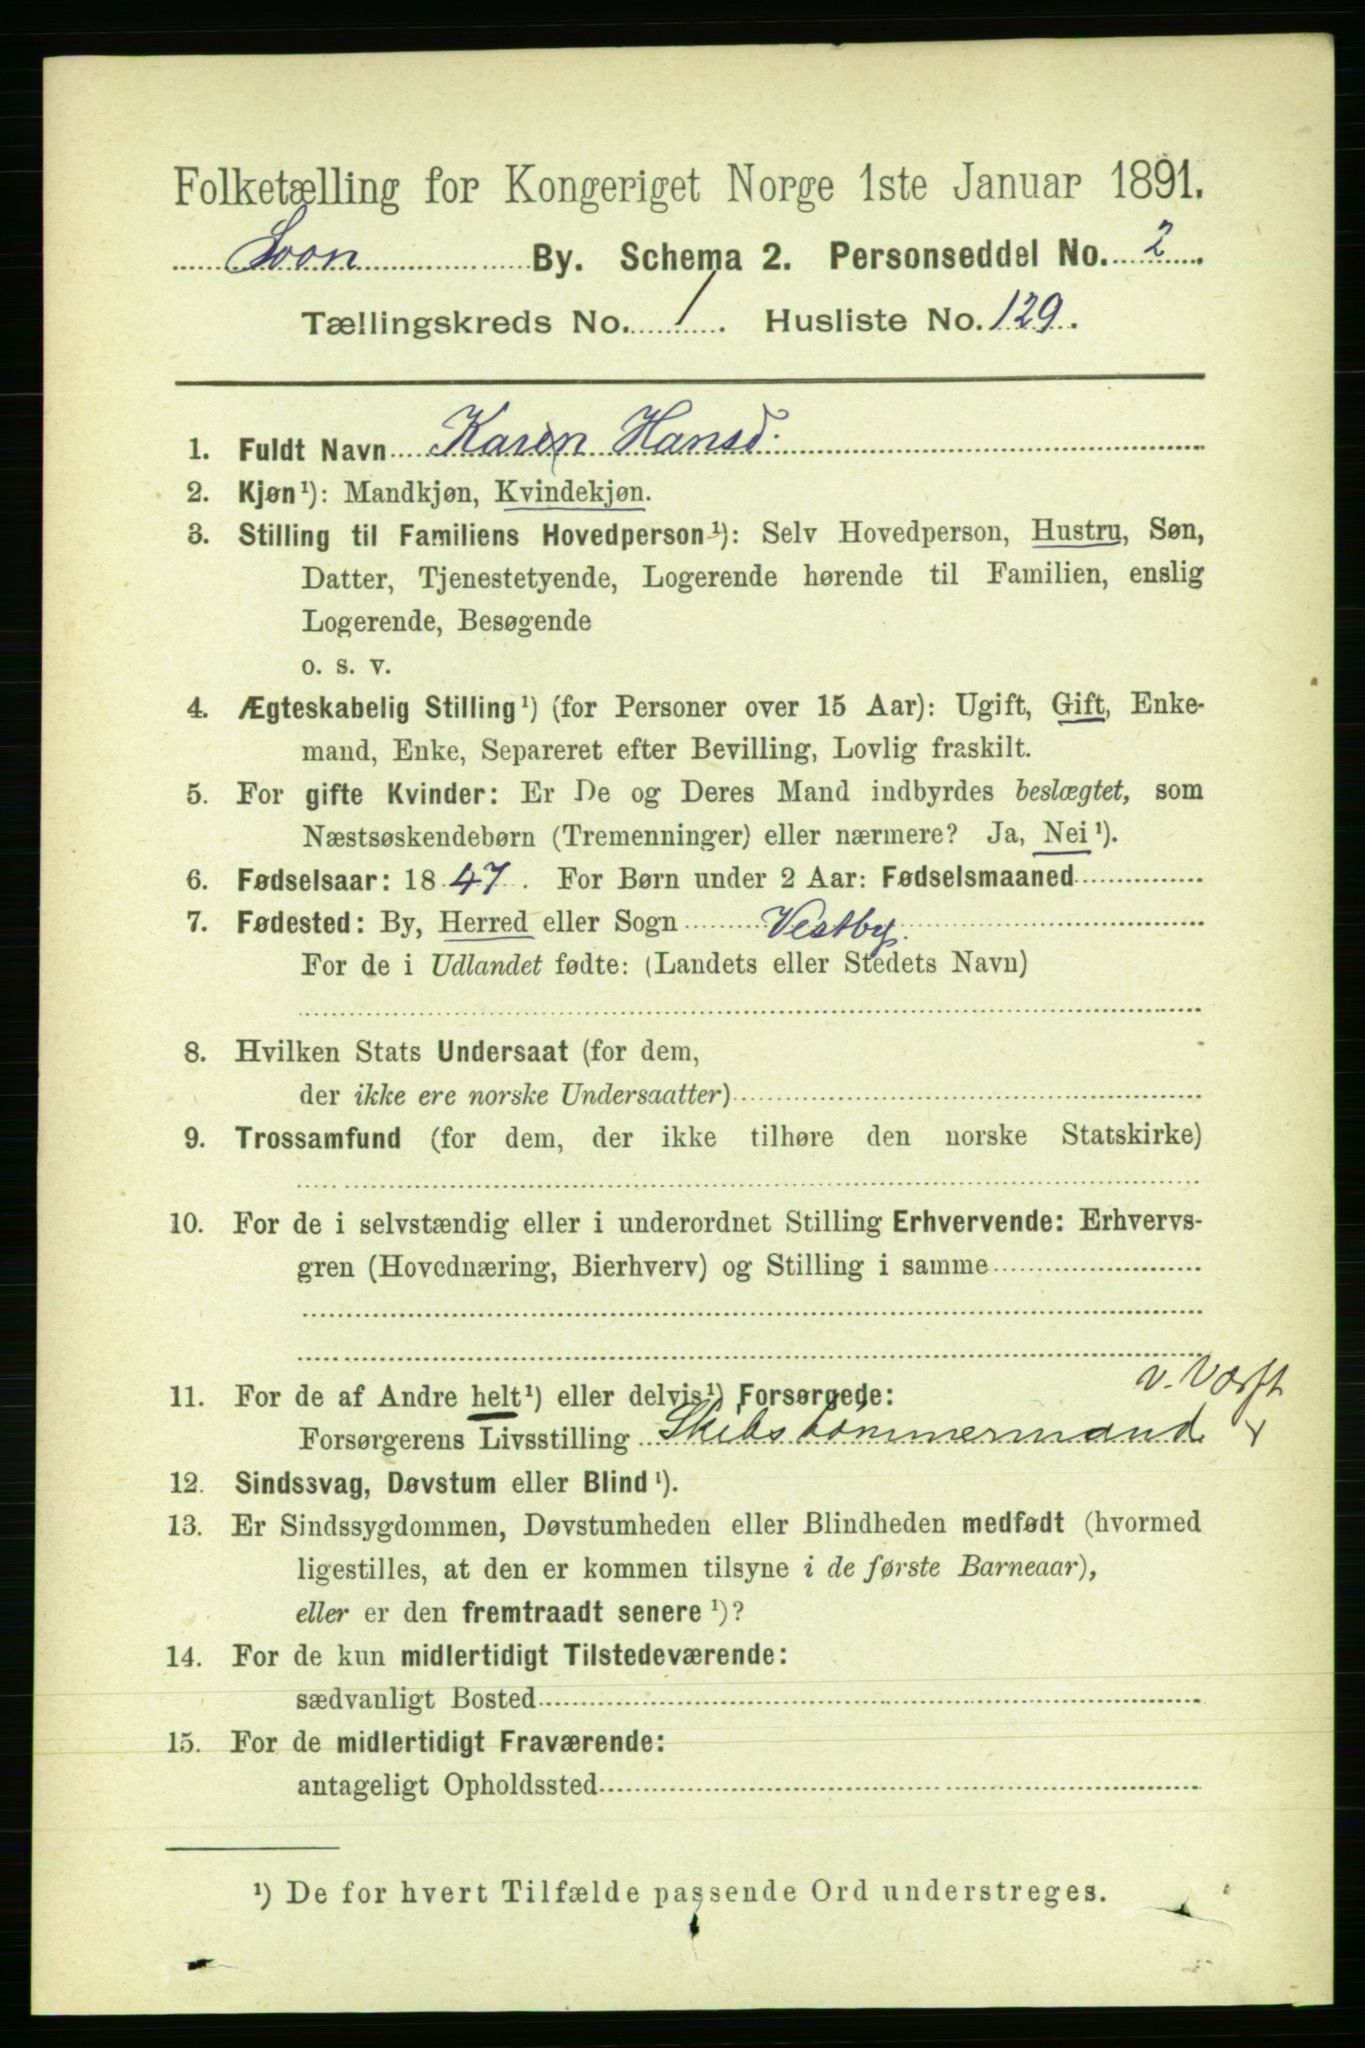 Folketælling for Kongeriget Norge 1ste Januar 1891.
Soon By. Schema 2. Personseddel No. 2
Tællingskreds No. 1. Husliste No. 129.
1. Fuldt Navn Karen Hansd.
2. Kjøn ¹): Mandkjøn, Kvindekjøn.
3. Stilling til Familiens Hovedperson ¹): Selv Hovedperson, Hustru, Søn,
Datter, Tjenestetyende, Logerende hørende til Familien, enslig
Logerende, Besøgende
o. s. v.
4. Ægteskabelig Stilling ¹) (for Personer over 15 Aar): Ugift, Gift, Enke-
mand, Enke, Separeret efter Bevilling, Lovlig fraskilt.
5. For gifte Kvinder: Er De og Deres Mand indbyrdes beslægtet, som
Næstsøskendebørn (Tremenninger) eller nærmere? Ja, Nei ¹).
6. Fødselsaar: 1847. For Børn under 2 Aar: Fødselsmaaned
7. Fødested: By, Herred eller Sogn Vestby.
For de i Udlandet fødte: (Landets eller Stedets Navn)
8. Hvilken Stats Undersaat (for dem,
der ikke ere norske Undersaatter)
9. Trossamfund (for dem, der ikke tilhøre den norske Statskirke)
10. For de i selvstændig eller i underordnet Stilling Erhvervende: Erhvervs-
gren (Hovednæring, Bierhverv) og Stilling i samme
v. Værft
11. For de af Andre helt ¹) eller delvis ¹) Forsørgede:
Forsørgerens Livsstilling Skibstømmermand
12. Sindssvag, Døvstum eller Blind ¹).
13. Er Sindssygdommen, Døvstumheden eller Blindheden medfødt (hvormed
ligestilles, at den er kommen tilsyne i de første Barneaar),
eller er den fremtraadt senere ¹)?
14. For de kun midlertidigt Tilstedeværende:
sædvanligt Bosted
15. For de midlertidigt Fraværende:
antageligt Opholdssted
¹) De for hvert Tilfælde passende Ord understreges.